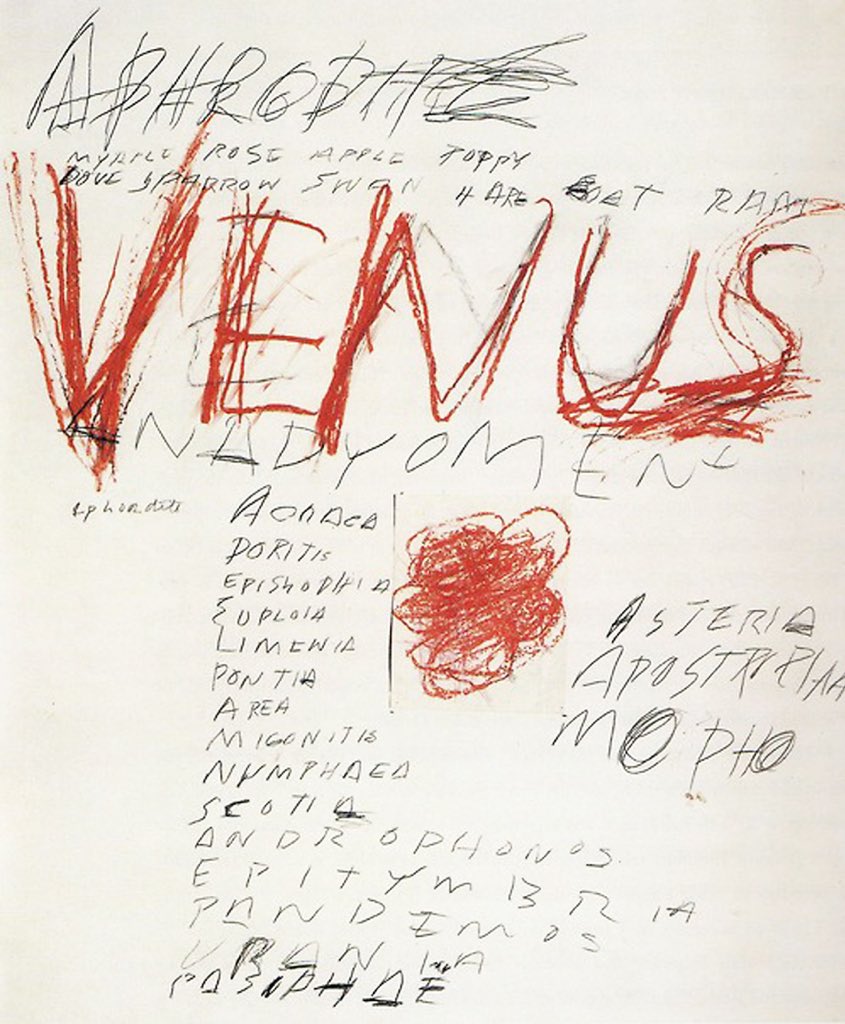 APHRODITE
MYRTLE ROSE APPLE POPPY
DOVE SPARROW SWAN HARE GOAT RAM
VENUS
ANADYOMENE
Aphordite
ACRAEA
DORITIS
EPISTROPHIA
EUPLOIA
LIMENIA
PONTIA
AREA
MIGONITIS
NYMPHAEA
SCOTIA
ANDROPHONOS
EPITYMBRIA
PANDEMOS
URANIA
PASIPHAE
ASTERIA
APOSTROPHIA
MORPHO